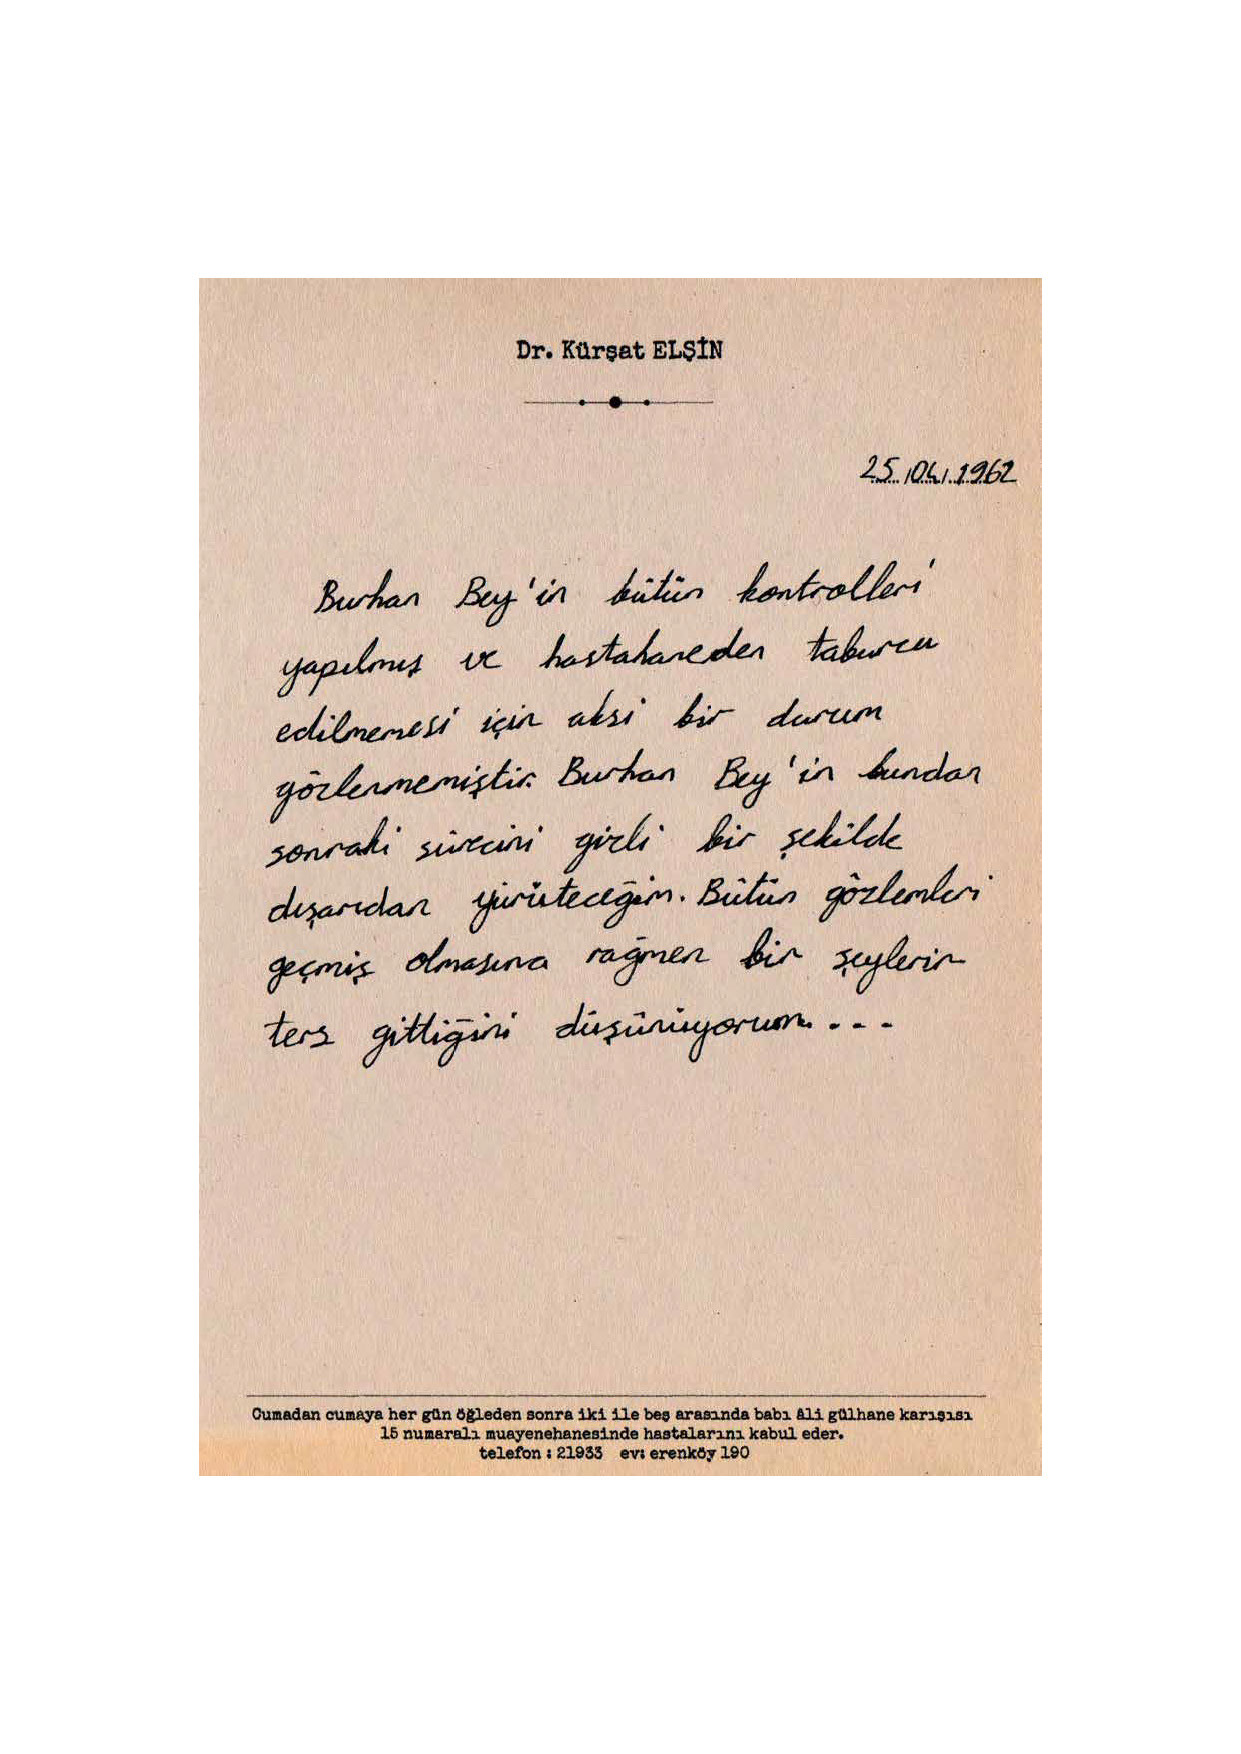 Dr. Kürşat ELŞİN
25/04/1962
Burhan Bey'in bütün kontrolleri
yapılmış ve hastahaneden taburcu
edilmemesi için aksi bir durum
gözlenmemiştir. Burhan Bey'in bundan
sonraki sürecini gizli bir şekilde
dışarıdan yürüteceğim. Bütün gözlemleri
geçmiş olmasına rağmen bir şeylerin
ters gittiğini düşünüyorum...
Cumadan cumaya her gün öğleden sonra iki ile beş arasında babı âli gülhane karışısı
15 numaralı muayenehanesinde hastalarını kabul eder.
telefon : 21933 ev: erenköy 190